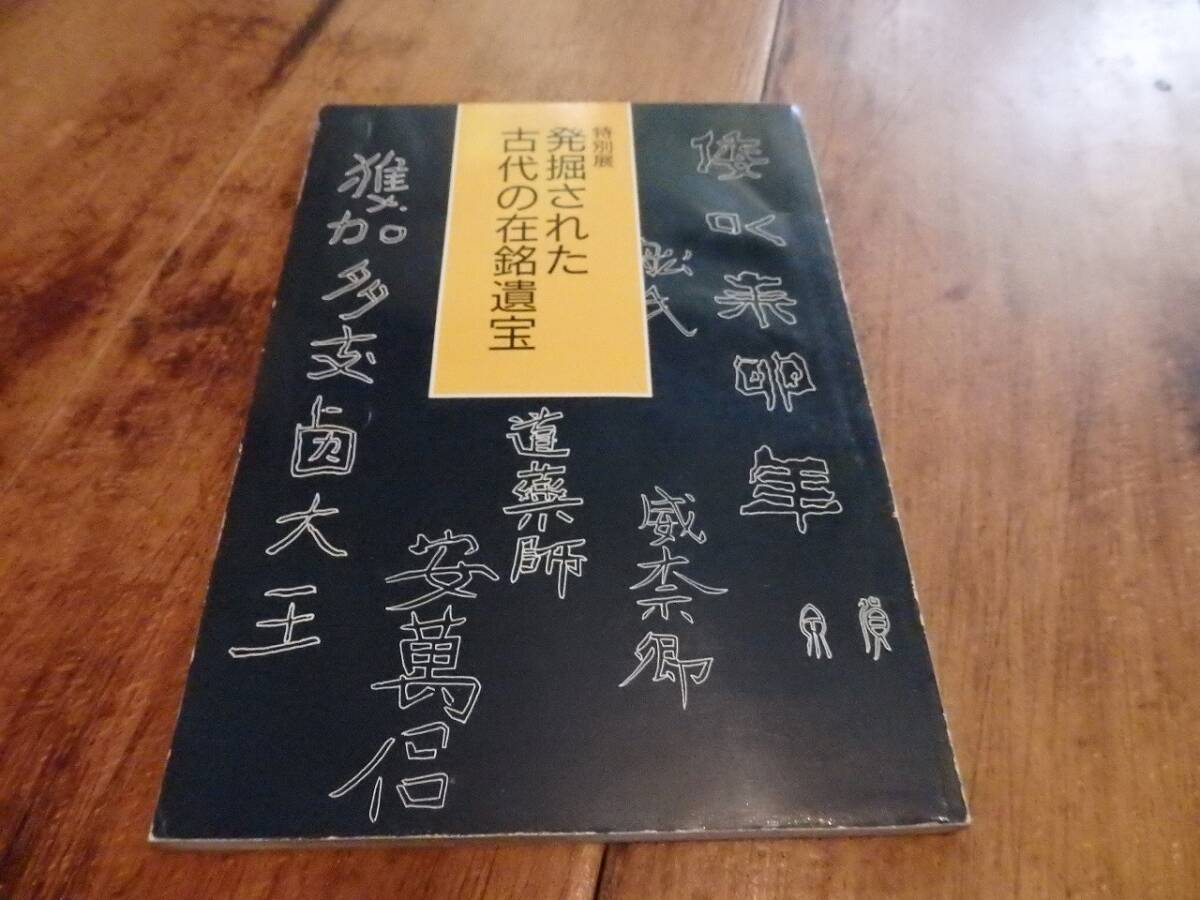 倭以辛卯年
貨泉
舩氏
威奈卿
特別展
発掘された
古代の在銘遺宝
道薬師
安萬侶
獲加多支鹵大王